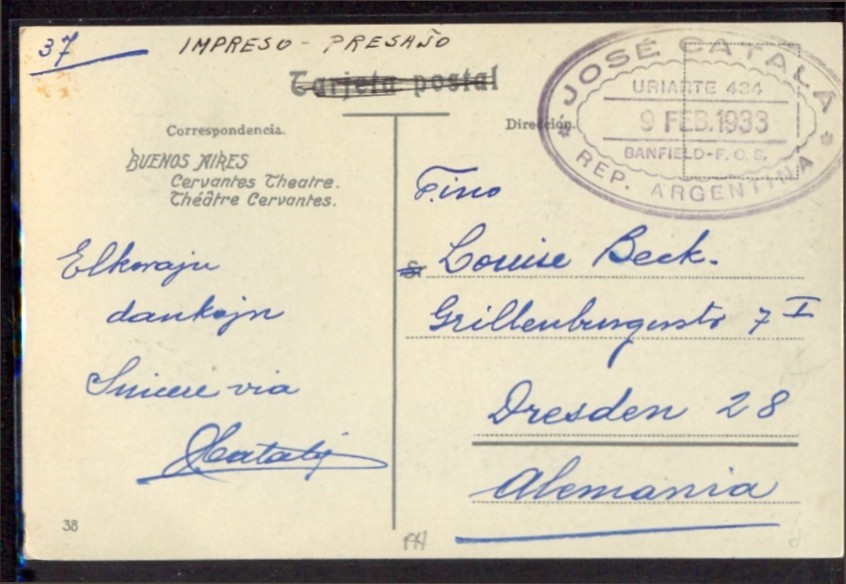 37
IMPRESO - PRESAĴO
Tarjeta postal
JOSÉ CATALÁ
URIARTE 434
9 FEB. 1933
BANFIELD-F.C.S.
REP. ARGENTINA
Correspondencia.
Dirección.
BUENOS AIRES
Cervantes Theatre.
Théâtre Cervantes.
F.ino
Elkorajn
dankojn
Sincere via
JCatalá
Sr.
Louise Beck.
Grillenburgerstr 7 I
Dresden 28
Alemania
38